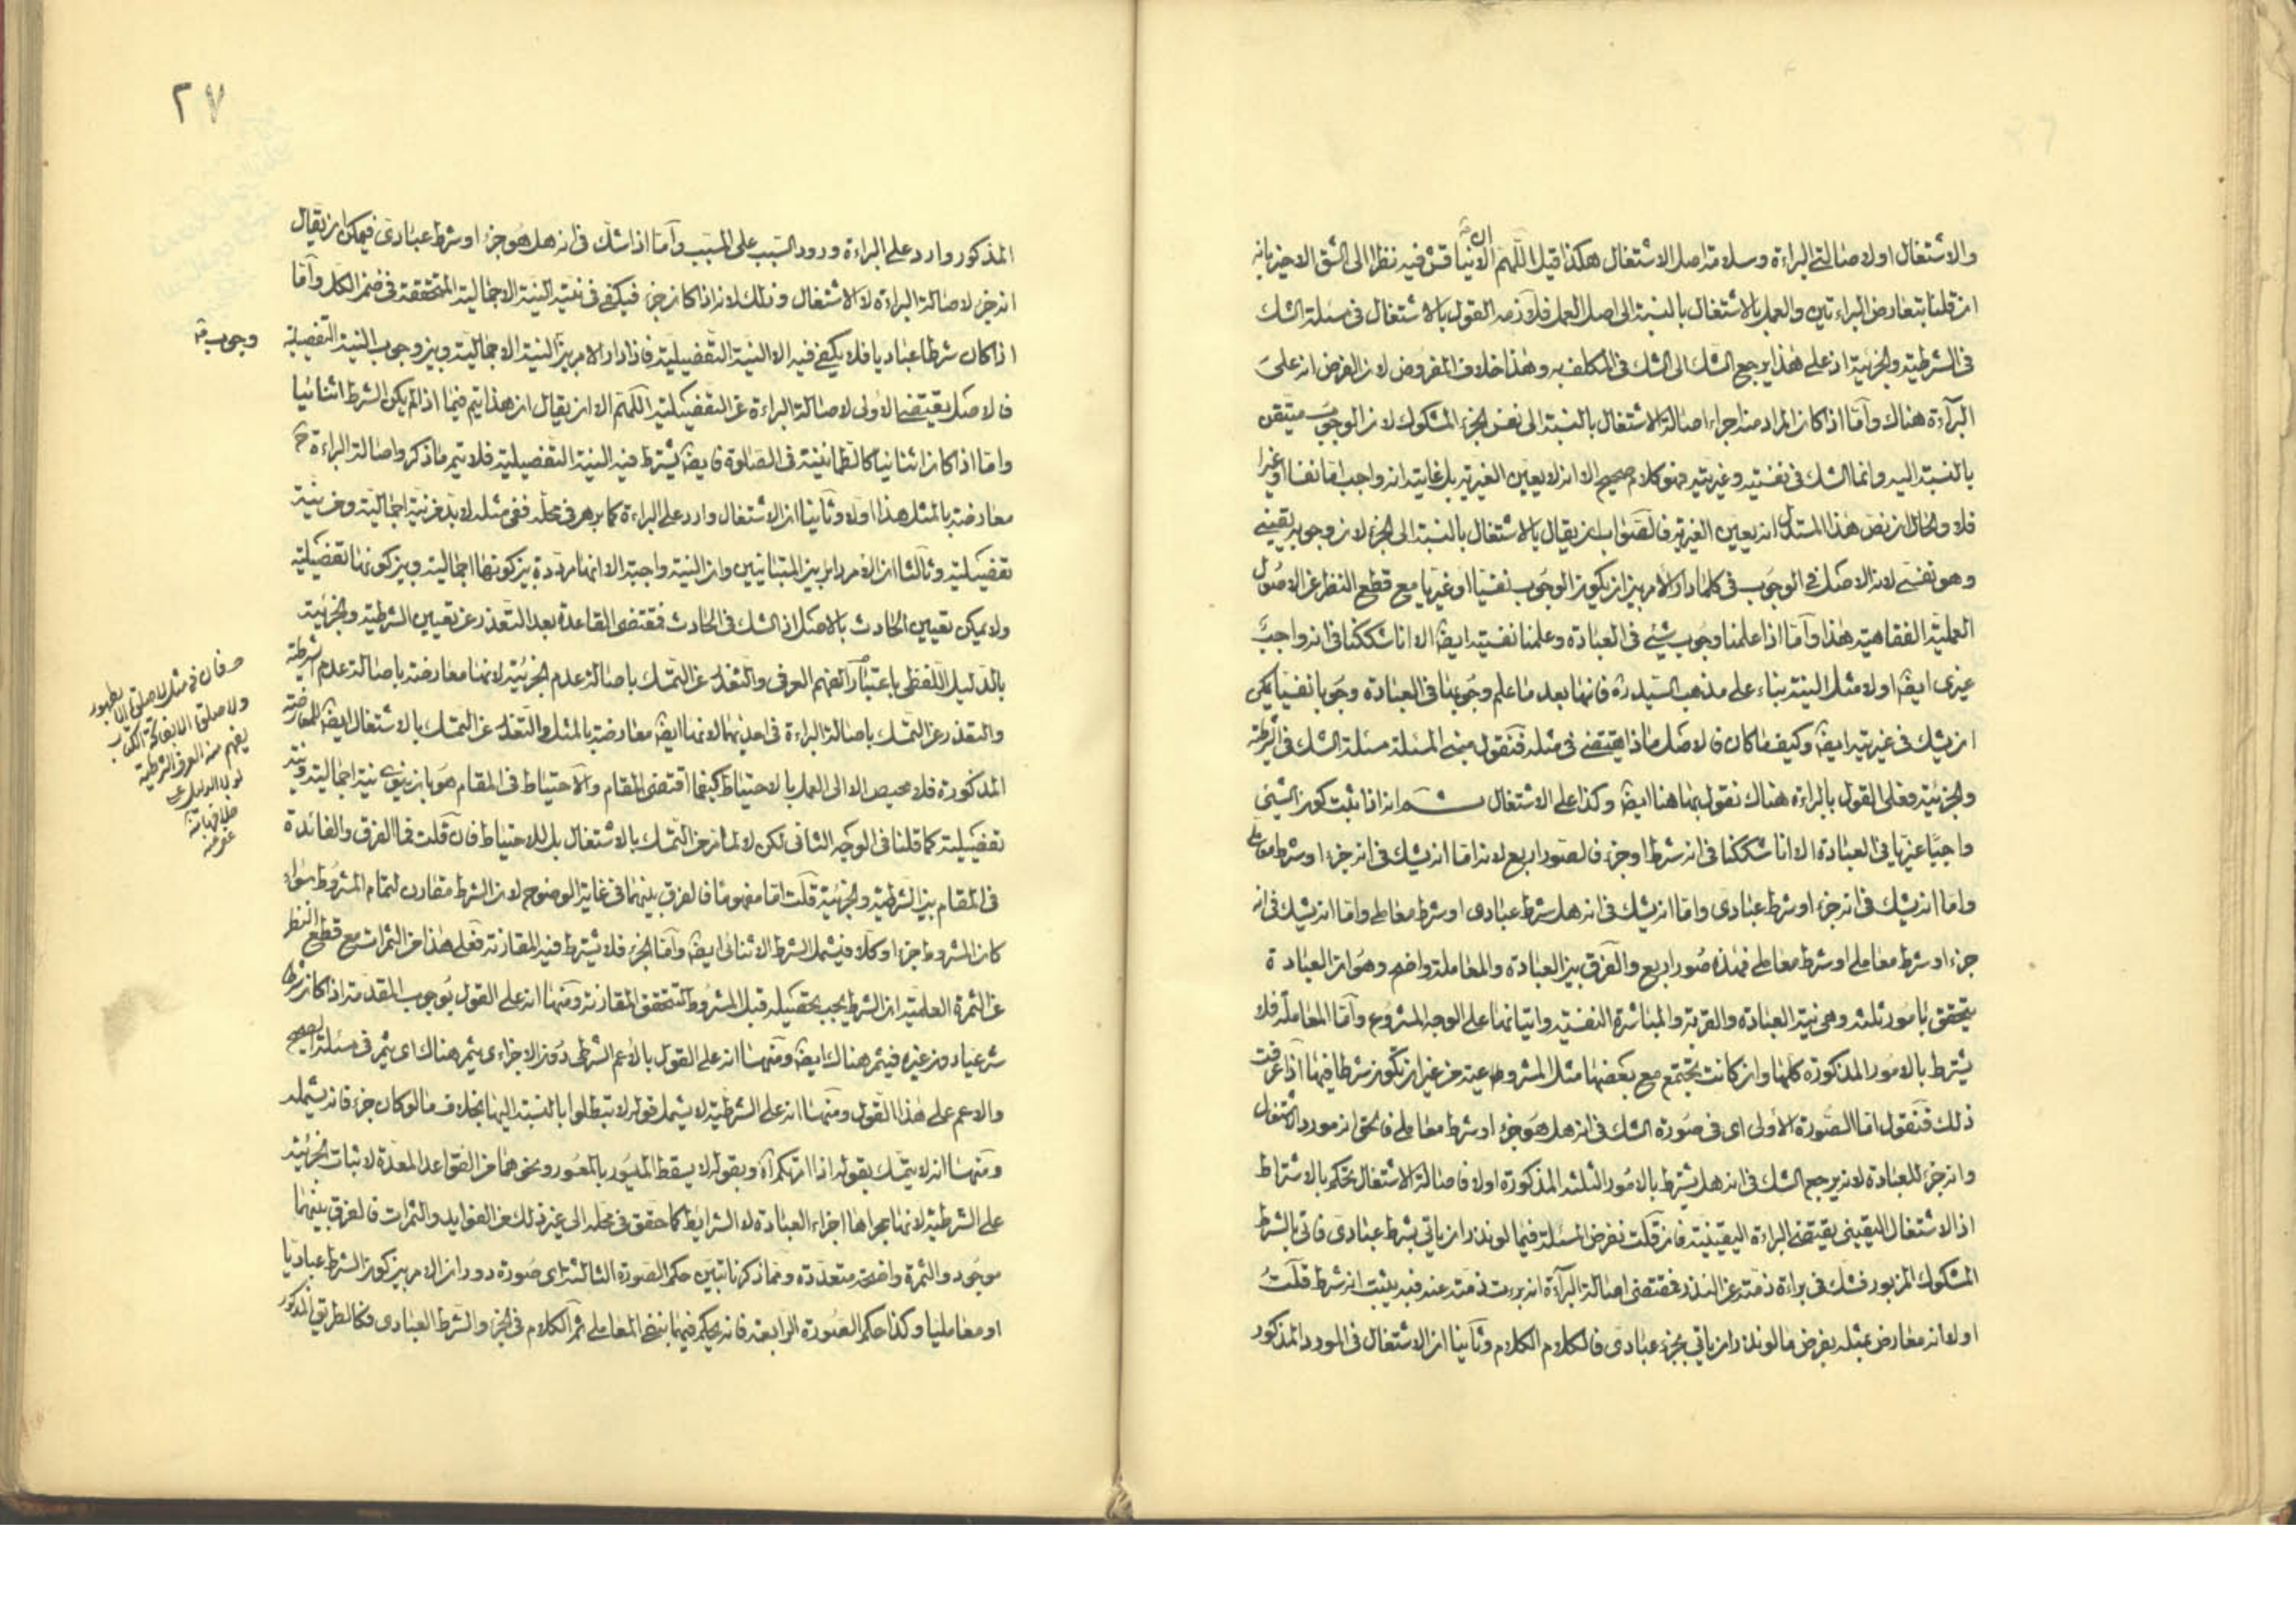 والاشتغال اولا صالتى البراءة وسلامة اصل الاشتغال هكذا قيل اللهم الا ان فيه نظرا الى الشق الاخير بانه
ان قلنا بتعارض البراءتين والعمل بالاشتغال بالنسبة الى اصل العمل فلازمه القول بالاشتغال فى مسئلة الشك
فى الشرطية والجزئية اذ على هذا يرجع الشك الى الشك فى المكلف به وهذا خلاف المفروض لان الفرض انه على
البرآءة هناك وآمّا اذا كان المراد منه اجراء اصالة الاشتغال بالنسبة الى نفس الجزء المشكوك لان الوجوب متيقن
بالنسبة اليه وانما الشك فى نفسيته وغيريته فهو كلام صحيح الا انه لا يعين الغيرية بل غايته انه واجب اما نفسا او غيرا
فلا والحال ان نص هذا المستدل انه يعين الغيرية فالصواب ان يقال بالاشتغال بالنسبة الى الجزء لان وجوبه يقينى
وهو نفسى لان الاصل فى الوجوب فى كلما دار الامر بين ان يكون الوجوب نفسيا او غيريا مع قطع النظر عن الاصول
العملية الفقاهية هذا وآمّا اذا علمنا وجوب شئ فى العبادة وعلمنا نفسيته ايضا الا انا شككنا فى انه واجب
غيرى ايضا اولا مثل النية بناء على مذهب السيد ره فانها بعد ما علم وجوبها فى العبادة وجوبا نفسيا يمكن
ان يشك فى غيريته ايضا وكيف ما كان فالاصل ماذا يقتضى فى مثله فنقول مبنى المسئلة مسئلة الشك فى الشرطية
والجزئية فعلى القول بالبراءة هناك نقول بها هنا ايضا وكذا على الاشتغال ثم انه اذا ثبت كون الشئ
واجبا غيريا فى العبادة الا انا شككنا فى انه شرط او جزء فالصور اربع لانه اما ان يشك فى انه جزء او شرط معاملى
واما ان يشك فى انه جزء او شرط عبادى واما ان يشك فى انه هل شرط عبادى او شرط معاملى واما ان يشك فى انه
جزء او شرط معاملى او شرط معاملى فهذه صور اربع والفرق بين العبادة والمعاملة واضح وهو ان العبادة
يتحقق بامور ثلثة وهى نية العبادة والقربة والمباشرة النفسية واتيانها على الوجه المشروع وآمّا المعاملة فلا
يشترط بالامور المذكورة كلها وان كانت يجتمع مع بعضها مثل المشروعية من غير ان تكون شرطا فيها اذا عرفت
ذلك فنقول امّا الصورة الاولى اى فى صورة الشك فى انه هل هو جزء او شرط معاملى فالحق انه مورد الاشتغال
وانه جزء للعبادة لانه يرجع الشك فى انه هل يشترط بالامور الثلثة المذكورة اولا فاصالة الاشتغال يحكم بالاشتراط
اذ الاشتغال اليقينى يقتضى البراءة اليقينية فان قلت نفرض المسئلة فيما لو نذر ان ياتى بشرط عبادى فاتى بالشرط
المشكوك المزبور فشك فى براءة ذمته عن النذر فمقتضى اصالة البرآءة انه برءت ذمته عنه فيه يثبت انه شرط قلت
اولا انه معارض بمثله بفرض ما لو نذر ان ياتى بجزء عبادى فالكلام الكلام وثانيا ان الاشتغال فى المورد المذكور
٢٧
المذكور وارد على البراءة ورود السبب على المسبب وآمّا اذا شك فى انه هل هو جزء او شرط عبادى فيمكن ان يقال
انه جزء لاصالة البراءة لا الاشتغال وذلك لانه اذا كان جزء فيكفى فى نيته النية الاجمالية المتحققة فى ضمن الكل وآمّا
اذا كان شرطا عباديا فلا يكفى فيه الا النية التفصيلية فاذا دار الامر بين النية الاجمالية وبين وجوب النية التفصيلية
وجوب
فالاصل يقتضى الاولى لاصالة البراءة عن التفصيلية اللهم الا ان يقال ان هذا يتم فيما اذا لم يكن الشرط اثنائيا
وامّا اذا كان اثنائيا كالطمانينة فى الصلوة فايضا يشترط فيه النية التفصيلية فلا يتم ما ذكر واصالة البراءة ح
معارضة بالمثل هذا اولا وثانيا ان الاشتغال وارد على البراءة كما برهن فى محله ففى مثله لا بد من نية اجمالية ومن نية
تفصيلية وثالثا ان الامر دار بين المتباينين وان النية واجبة الا انها مرددة بين كونها اجمالية وبين كونها تفصيلية
ولا يمكن تعيين الحادث بالاصل اذ الشك فى الحادث فمقتضى القاعدة بعد التعذر عن تعيين الشرطية والجزئية
بالدليل اللفظى باعتبار الفهم العرفى والتعذر عن التمسك باصالة عدم الجزئية لانها معارضة باصالة عدم الشرطية
والتعذر عن التمسك باصالة البراءة فى احديهما لانها ايضا معارضة بالمثل والتعذر عن التمسك بالاشتغال ايضا للمعارضة
المذكورة فلا محيص الا الى العمل بالاحتياط كيفما اقتضى المقام والآحتياط فى المقام هو بان ينوى نية اجمالية ونية
تفصيلية كما قلنا فى الوجه الثانى لكن لا لما مر من التمسك بالاشتغال بل للاحتياط فان قلت فما الفرق والفائدة
فى المقام بين الشرطية والجزئية قلت امّا مفهوما فالفرق بينهما فى غاية الوضوح لان الشرط مقارن لتمام المشروط سواء
كان المشروط جزء او كلا فيشمل الشرط الاثنائى ايضا وآمّا الجزء فلا يشترط فيه المقارنة فعلى هذا من الثمرات مع قطع النظر
عن الثمرة العلمية ان الشرط يجب تحصيله قبل المشروط لتتحقق المقارنة ومنها انه على القول بوجوب المقدمة اذا كان شرطا
شرعيا دون غيره فيثمر هناك ايضا ومنها انه على القول بالاعم الشرطى دون الاجزاءى يثمر هناك اى يثمر فى مسئلة الصحيح
والاعم على هذا القول ومنها انه على الشرطية لا يشمل قوله لا تبطلوا بالنسبة اليها بخلاف ما لو كان جزء فانه يشمله
ومنها انه لا يتمسك بقوله اذا امرتكم آه وبقوله لا يسقط الميسور بالمعسور ونحوهما من القواعد المعدة لاثبات الجزئية
على الشرطية لانها مجراها اجزاء العبادة لا الشرايط كما حقق فى محله الى غير ذلك من الفوايد والثمرات فالفرق بينهما
موجود والثمرة واضحة متعددة ومما ذكرنا تبين حكم الصورة الثالثة اى صورة دوران الامر بين كون الشرط عباديا
او معامليا وكذا حكم الصورة الرابعة فانه يحكم فيهما بنفى المعاملى ثم الكلام فى الجزء والشرط العبادى فكالطريق المذكور
فان فى مثل لا صلوة الا بطهور
ولا صلوة الا بفاتحة الكتاب
يفهم منه العرف الشرطية
لولا الدليل على
خلافه